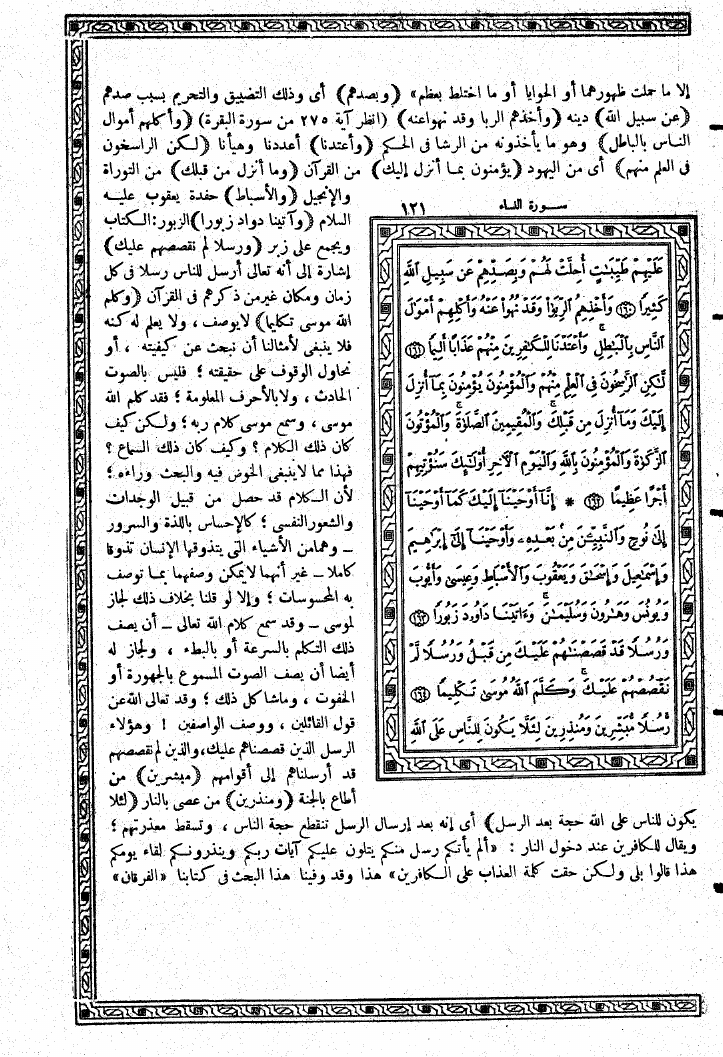 إلا ما حملت ظهورهما أو الحوايا أو ما اختلط بعظم» (وبصدهم) أى وذلك التضييق والتحريم بسبب صدهم
(عن سبيل الله) دينه (وأخذهم الربا وقد نهوا عنه) (انظر آية ٢٧٥ من سورة البقرة) (وأكلهم أموال
الناس بالباطل) وهو ما يأخذونه من الرشا فى الحكم (وأعتدنا) أعددنا وهيأنا (لكن الراسخون
فى العلم منهم) أى من اليهود (يؤمنون بما أنزل إليك) من القرآن (وما أنزل من قبلك) من التوراة
والإنجيل (والأسباط) حفدة يعقوب عليه
السلام (وآتينا دواد زبورا) الزبور: الكتاب
ويجمع على زبر (ورسلا لم نقصصهم عليك)
إشارة إلى أنه تعالى أرسل للناس رسلا فى كل
زمان ومكان غير من ذكرهم فى القرآن (وكلم
الله موسى تكليما) لا يوصف ، ولا يعلم له كنه
فلا ينبغى لأمثالنا أن نبحث عن كيفيته ، أو
نحاول الوقوف على حقيقته ؛ فليس بالصوت
الحادث ، ولا بالأحرف المعلومة ؛ فقد كلم الله
موسى ، وسمع موسى كلام ربه ؛ ولكن كيف
كان ذلك الكلام ؟ وكيف كان ذلك السماع ؟
فهذا مما لا ينبغى الخوض فيه والبحث وراءه ؛
لأن الكلام قد حصل من قبيل الوجدات
والشعور النفسى ؛ كالإحساس باللذة والسرور
ــ وهما من الأشياء التى يتذوقها الإنسان تذوقا
كاملا ــ غير أنهما لا يمكن وصفهما بما توصف
به المحسوسات ؛ وإلا لو قلنا بخلاف ذلك لجاز
لموسى ــ وقد سمع كلام الله تعالى ــ أن يصف
ذلك التكلم بالسرعة أو بالبطء ، ولجاز له
أيضا أن يصف الصوت المسموع بالجهورة أو
الخفوت ، وما شاكل ذلك ؛ وقد تعالى الله عن
قول القائلين ، ووصف الواصفين ! وهؤلاء
الرسل الذين قصصناهم عليك، والذين لم نقصصهم
قد أرسلناهم إلى أقوامهم (مبشرين) من
أطاع بالجنة (ومنذرين) من عصى بالنار (لئلا
سورة النساء ١٢١
عَلَيْهِمْ طَيِّبَٰتٍ أُحِلَّتْ لَهُمْ وَبِصَدِّهِمْ عَن سَبِيلِ ٱللَّهِ
كَثِيرًا ﴿١٦٠﴾ وَأَخْذِهِمُ ٱلرِّبَوٰا۟ وَقَدْ نُهُوا۟ عَنْهُ وَأَكْلِهِمْ أَمْوَٰلَ
ٱلنَّاسِ بِٱلْبَٰطِلِ ۚ وَأَعْتَدْنَا لِلْكَٰفِرِينَ مِنْهُمْ عَذَابًا أَلِيمًا ﴿١٦١﴾
لَّٰكِنِ ٱلرَّٰسِخُونَ فِى ٱلْعِلْمِ مِنْهُمْ وَٱلْمُؤْمِنُونَ يُؤْمِنُونَ بِمَآ أُنزِلَ
إِلَيْكَ وَمَآ أُنزِلَ مِن قَبْلِكَ ۚ وَٱلْمُقِيمِينَ ٱلصَّلَوٰةَ ۚ وَٱلْمُؤْتُونَ
ٱلزَّكَوٰةَ وَٱلْمُؤْمِنُونَ بِٱللَّهِ وَٱلْيَوْمِ ٱلْءَاخِرِ أُو۟لَٰٓئِكَ سَنُؤْتِيهِمْ
أَجْرًا عَظِيمًا ﴿١٦٢﴾ * إِنَّآ أَوْحَيْنَآ إِلَيْكَ كَمَآ أَوْحَيْنَآ
إِلَىٰ نُوحٍ وَٱلنَّبِيِّـۧنَ مِنۢ بَعْدِهِۦ ۚ وَأَوْحَيْنَآ إِلَىٰٓ إِبْرَٰهِيمَ
وَإِسْمَٰعِيلَ وَإِسْحَٰقَ وَيَعْقُوبَ وَٱلْأَسْبَاطِ وَعِيسَىٰ وَأَيُّوبَ
وَيُونُسَ وَهَٰرُونَ وَسُلَيْمَٰنَ ۚ وَءَاتَيْنَا دَاوُۥدَ زَبُورًا ﴿١٦٣﴾
وَرُسُلًا قَدْ قَصَصْنَٰهُمْ عَلَيْكَ مِن قَبْلُ وَرُسُلًا لَّمْ
نَقْصُصْهُمْ عَلَيْكَ ۚ وَكَلَّمَ ٱللَّهُ مُوسَىٰ تَكْلِيمًا ﴿١٦٤﴾
رُّسُلًا مُّبَشِّرِينَ وَمُنذِرِينَ لِئَلَّا يَكُونَ لِلنَّاسِ عَلَى ٱللَّهِ
يكون للناس على الله حجة بعد الرسل) أى إنه بعد إرسال الرسل تنقطع حجة الناس ، وتسقط معذرتهم ؛
ويقال للكافرين عند دخول النار : «ألم يأتكم رسل منكم يتلون عليكم آيات ربكم وينذرونكم لقاء يومكم
هذا قالوا بلى ولكن حقت كلمة العذاب على الكافرين» هذا وقد وفينا هذا البحث فى كتابنا «الفرقان»